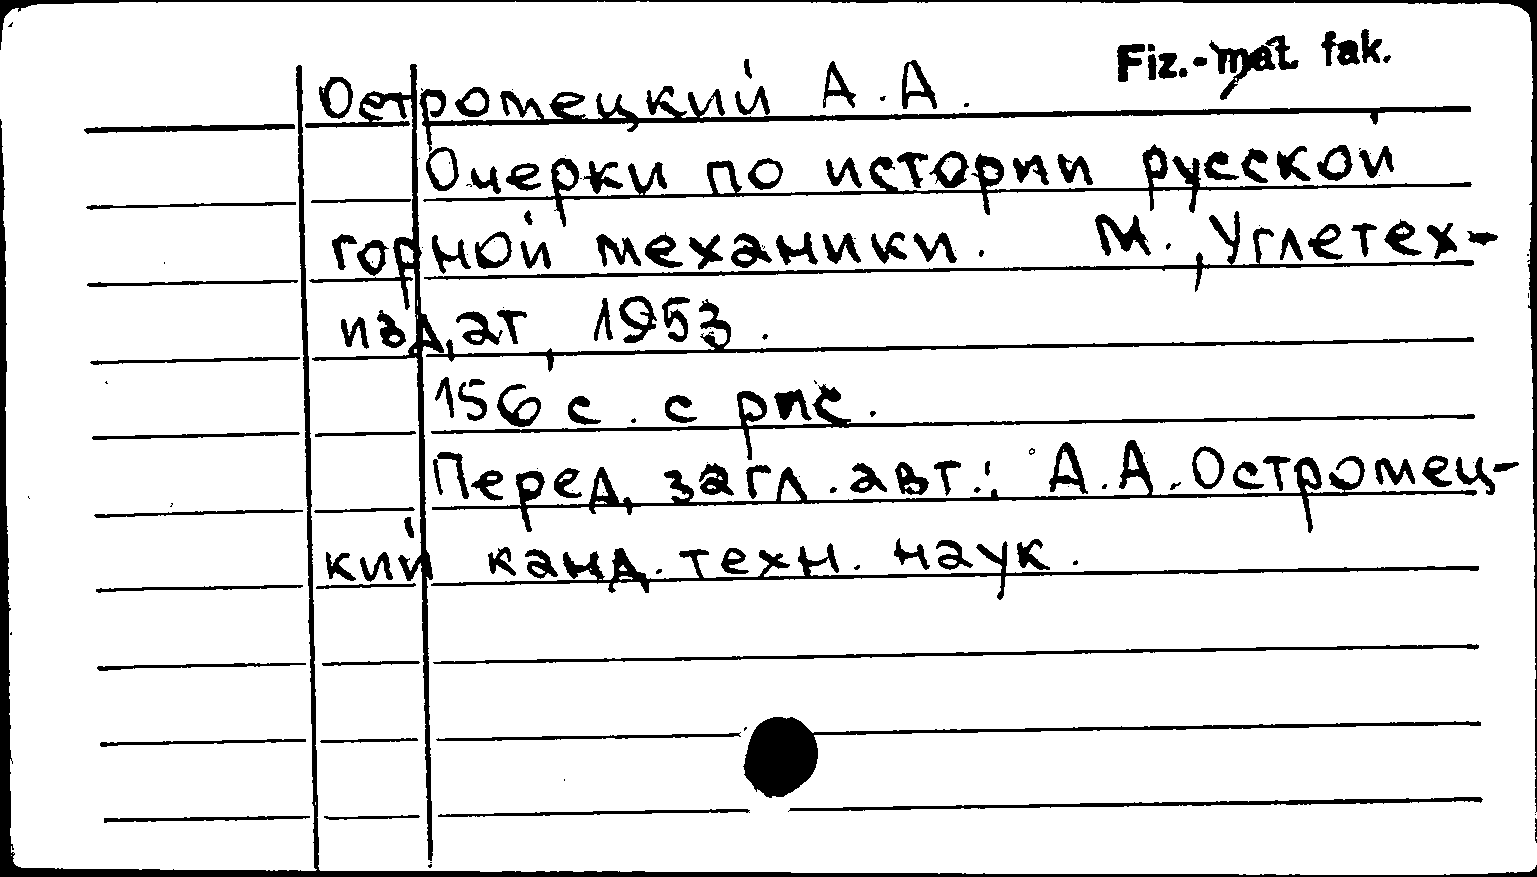 Fiz.-mat. fak.
Остромецкий А.А.
Очерки по истории русской
горной механики. М., Углетех-
издат, 1953.
156 с. с рис.
Перед загл. авт.: А.А. Остромец-
кий канд. техн. наук.